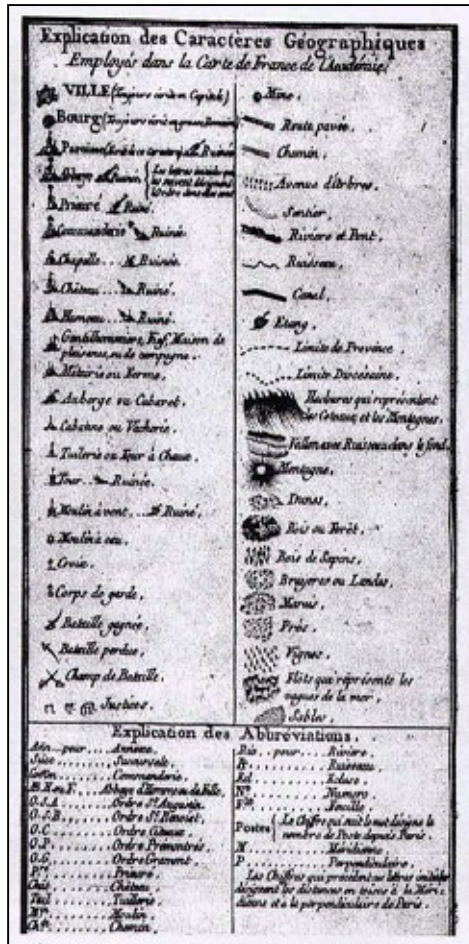 Explication des Caractères Géographiques
Employés dans la Carte de France de l'Académie.
VILLE (Toujours écrite en Capitale)
Bourg (Toujours écrit en
Paroisse Ruinée
Abbaye Ruinée { Les lettres initiales qui
les suivent désignent
l'Ordre dont elles sont
Prieuré Ruiné.
Commanderie Ruinée
Chapelle... Ruinée.
Château... Ruiné.
Hameau... Ruiné.
Gentilhommiere, Fief, Maison de
plaisance, ou de campagne.
Métairie ou Ferme.
Auberge ou Cabaret.
Cabanne ou Vacherie.
Tuilerie ou Four à Chaux.
Tour... Ruinée.
Moulin à vent... Ruiné.
Moulin à eau.
Croix.
Corps de garde.
Bataille gagnée.
Bataille perdue.
Champ de Bataille.
Justices.
Mine.
Route pavée.
Chemin.
Avenue d'Arbres.
Sentier.
Riviere et Pont.
Ruisseau.
Canal.
Etang.
Limite de Province.
Limite Diocésaine.
Hachures qui représentent
les Coteaux et les Montagnes.
Vallon avec Ruisseau dans le fond.
Montagne.
Dunes.
Bois ou Forêt.
Bois de Sapins.
Bruyeres ou Landes.
Marais.
Prés.
Vignes.
Flots qui représente les
vagues de la mer.
Sables.
Explication des Abbréviations.
pour.... Annexe.
Succursale.
Commanderie.
Abbaye d'Hommes ou de Filles.
O.S.A. Ordre St. Augustin.
O.S.B. Ordre St. Benoist.
O.C. Ordre Citeaux.
O.P. Ordre Prémontrés.
O.G. Ordre Gramont.
Prieuré.
Château.
Tuillerie.
Moulin.
Chemin.
Riv. pour.... Riviere.
R. Ruisseau.
Ecluse.
N.º Numero.
Feuille.
Postes { Le Chiffre qui suit le mot désigne le
nombre de Poste depuis Paris.
M. Méridienne.
P. Perpendiculaire.
Les Chiffres qui précedent ces lettres initiales
désignent les distances en toises à la Méri-
dienne et à la perpendiculaire de Paris.